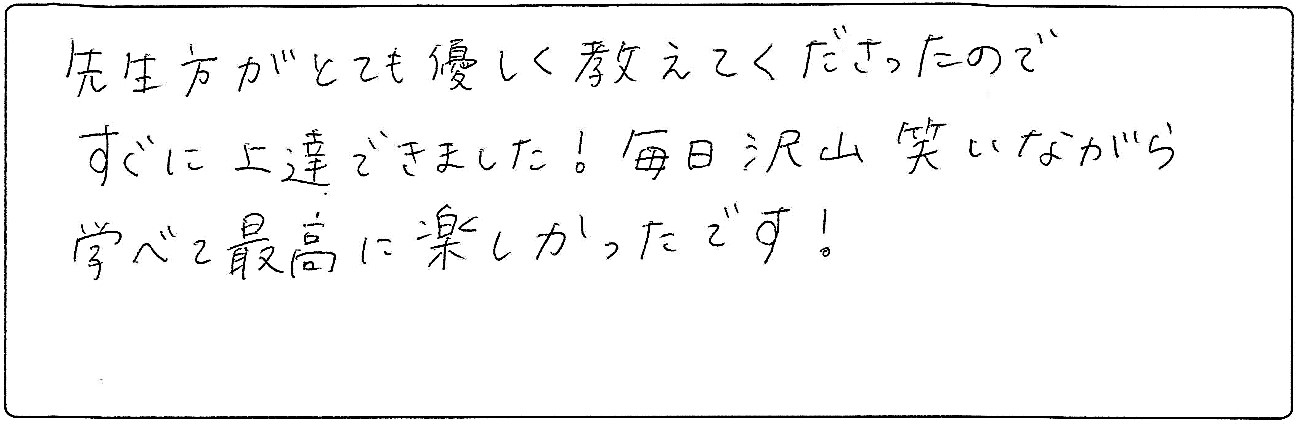 先生方がとても優しく教えてくださったので
すぐに上達できました!毎日沢山笑いながら
学べて最高に楽しかったです!